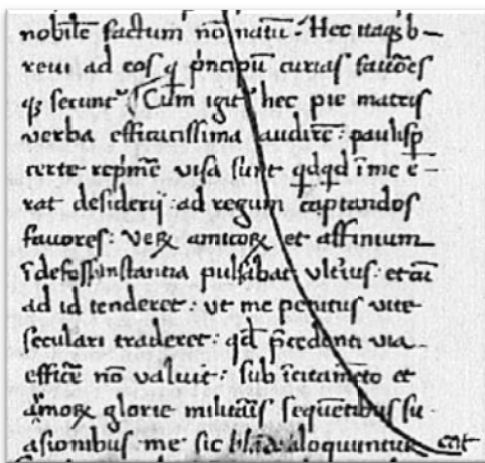 nobilē factum nō natū: Hec itaqȝ b-
reui ad eos q p̄ncipū curias fauōes
qȝ ferunt Cum igit̄ hec pie matris
verba efficatissima audirē: paulisꝑ
certe rep̄mē visa sunt qdqd ī me e-
rat desiderij: ad regum captandos
fauores: Veꝝ amicoꝝ et affinium
īdefessa instantia pulsabat vlt̄ius: et cū
ad id tenderet: vt me penitus vite
seculari traderet: qd̄ p̄cedenti via
efficē nō valuit: sub īcitamēto et
amoꝝ glorie militāis sequētibus su-
asionibus me sic blāde aloquuntur